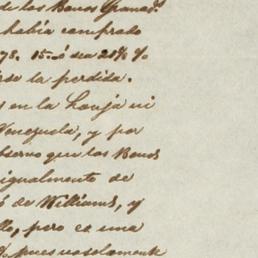 de los Bonos Granad.s
había comprado
78. 15. ó sea 21% %
rse la perdida.
s en la Lonja ni
Venezuela, y por
bserva que los Bonos
igualmente de
ó de Williams, y
llo, pero es una
%, pues no solamente